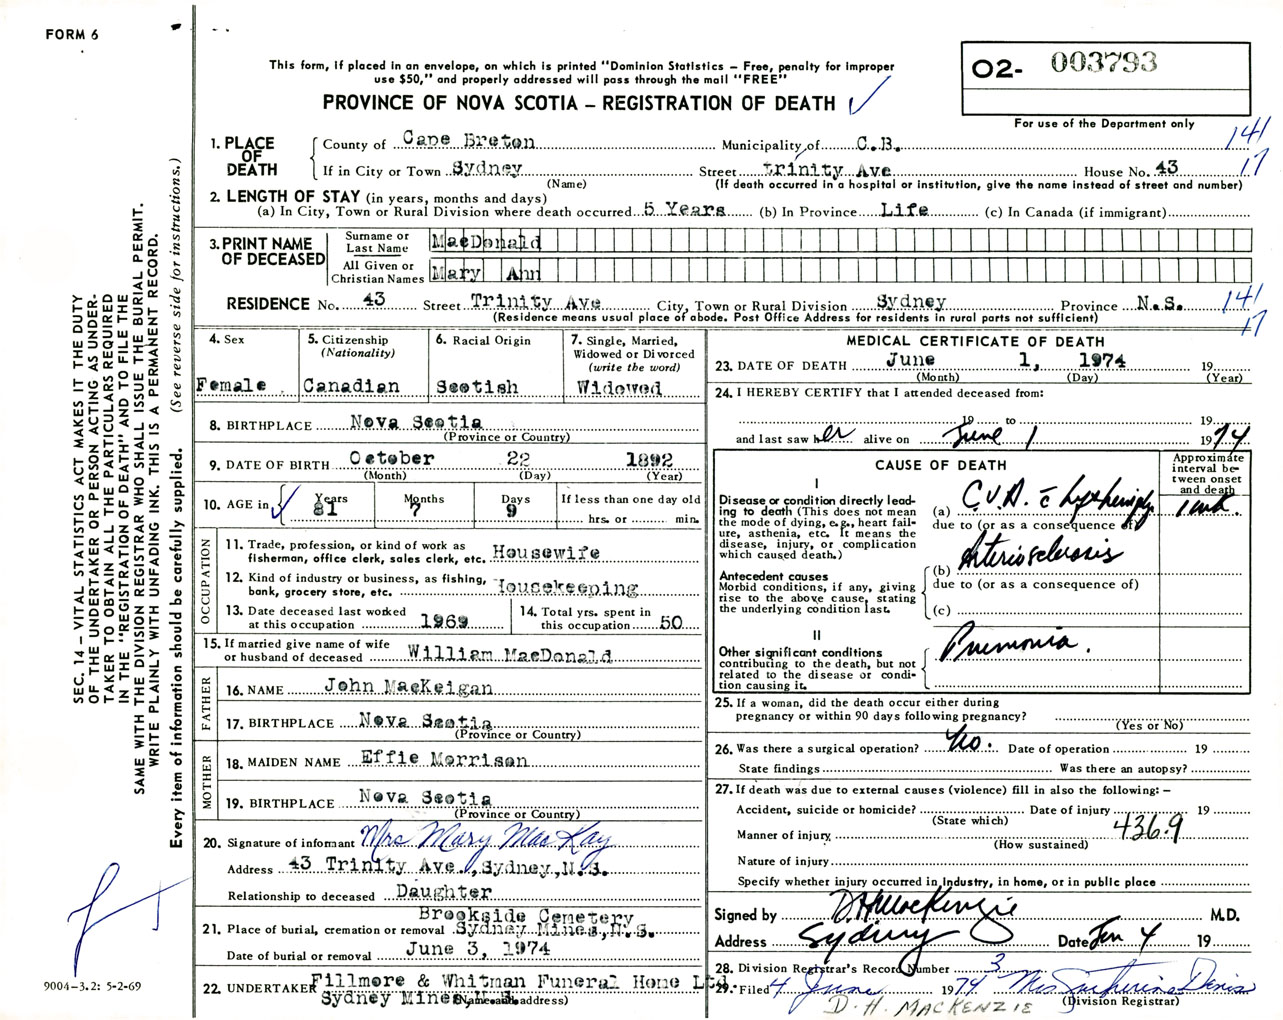 FORM 6
This form, if placed in an envelope, on which is printed "Dominion Statistics – Free, penalty for improper
use $50," and properly addressed will pass through the mail "FREE"
PROVINCE OF NOVA SCOTIA – REGISTRATION OF DEATH
02- 003793
For use of the Department only
141
17
1. PLACE OF DEATH
County of Cape Breton Municipality of C.B.
If in City or Town Sydney Street Trinity Ave House No. 43
(Name) (If death occurred in a hospital or institution, give the name instead of street and number)
2. LENGTH OF STAY (in years, months and days)
(a) In City, Town or Rural Division where death occurred 5 Years (b) In Province Life (c) In Canada (if immigrant)
3. PRINT NAME OF DECEASED
Surname or Last Name MacDonald
All Given or Christian Names Mary Ann
RESIDENCE No. 43 Street Trinity Ave City, Town or Rural Division Sydney Province N.S. 141
(Residence means usual place of abode. Post Office Address for residents in rural parts not sufficient) 17
4. Sex Female
5. Citizenship (Nationality) Canadian
6. Racial Origin Scotish
7. Single, Married, Widowed or Divorced (write the word) Widowed
8. BIRTHPLACE Nova Scotia
(Province or Country)
9. DATE OF BIRTH October 22 1892
(Month) (Day) (Year)
10. AGE in Years 81 Months 7 Days 9 If less than one day old
hrs. or min.
OCCUPATION
11. Trade, profession, or kind of work as
fisherman, office clerk, sales clerk, etc. Housewife
12. Kind of industry or business, as fishing,
bank, grocery store, etc. Housekeeping
13. Date deceased last worked
at this occupation 1969
14. Total yrs. spent in
this occupation 50
15. If married give name of wife
or husband of deceased William MacDonald
FATHER
16. NAME John MacKeigan
17. BIRTHPLACE Nova Scotia
(Province or Country)
MOTHER
18. MAIDEN NAME Effie Morrison
19. BIRTHPLACE Nova Scotia
(Province or Country)
20. Signature of informant Mrs Mary MacKay
Address 43 Trinity Ave., Sydney, N.S.
Relationship to deceased Daughter
Brookside Cemetery
21. Place of burial, cremation or removal Sydney Mines, N.S.
Date of burial or removal June 3, 1974
22. UNDERTAKER Fillmore & Whitman Funeral Home Ltd.
Sydney Mines, N.S. (Name and address)
MEDICAL CERTIFICATE OF DEATH
23. DATE OF DEATH June 1, 1974 19
(Month) (Day) (Year)
24. I HEREBY CERTIFY that I attended deceased from:
19 to 19
and last saw her alive on June 1 1974
CAUSE OF DEATH
Approximate
interval be-
tween onset
and death
I
Disease or condition directly lead-
ing to death (This does not mean
the mode of dying, e.g., heart fail-
ure, asthenia, etc. It means the
disease, injury, or complication
which caused death.)
(a) C.V.A. c̄
due to (or as a consequence of)
Antecedent causes
Morbid conditions, if any, giving
rise to the above cause, stating
the underlying condition last.
(b) Arteriosclerosis
due to (or as a consequence of)
(c)
II
Other significant conditions
contributing to the death, but not
related to the disease or condi-
tion causing it.
Pneumonia.
25. If a woman, did the death occur either during
pregnancy or within 90 days following pregnancy?
(Yes or No)
26. Was there a surgical operation? No. Date of operation 19
State findings Was there an autopsy?
27. If death was due to external causes (violence) fill in also the following: –
Accident, suicide or homicide? Date of injury 19
(State which)
436.9
Manner of injury
(How sustained)
Nature of injury
Specify whether injury occurred in Industry, in home, or in public place
Signed by D.H. MacKenzie M.D.
Address Sydney Date Jun 4 19
28. Division Registrar's Record Number 3
29. Filed 4 June 1974 Mrs
(Division Registrar)
D. H. MACKENZIE
SEC. 14 – VITAL STATISTICS ACT MAKES IT THE DUTY
OF THE UNDERTAKER OR PERSON ACTING AS UNDER-
TAKER TO OBTAIN ALL THE PARTICULARS REQUIRED
IN THE "REGISTRATION OF DEATH" AND TO FILE THE
SAME WITH THE DIVISION REGISTRAR WHO SHALL ISSUE THE BURIAL PERMIT.
WRITE PLAINLY WITH UNFADING INK. THIS IS A PERMANENT RECORD.
Every item of information should be carefully supplied. (See reverse side for instructions.)
9004-3.2: 5-2-69